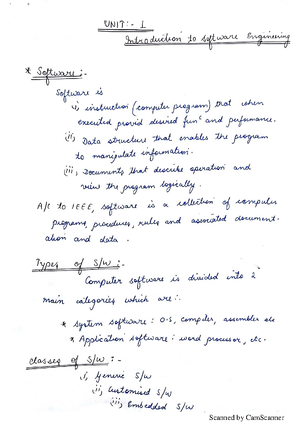 UNIT:- I
Introduction to Software Engineering
* Software :-
Software is
i, instruction (computer program) that when
executed provid desired func and performance.
ii, Data structure that enables the program
to manipulate information.
iii, Documents that describe operation and
view the program logically.
A/c to IEEE, software is a collection of computer
programs, procedures, rules and associated document-
ation and data.
Types of S/W :-
Computer software is divided into 2
main categories which are :-
* System software : O.S, compiler, assembler etc
* Application software : word processor, etc.
Classes of S/W :-
i, Generic S/W
ii, Customised S/W
iii, Embedded S/W
Scanned by CamScanner